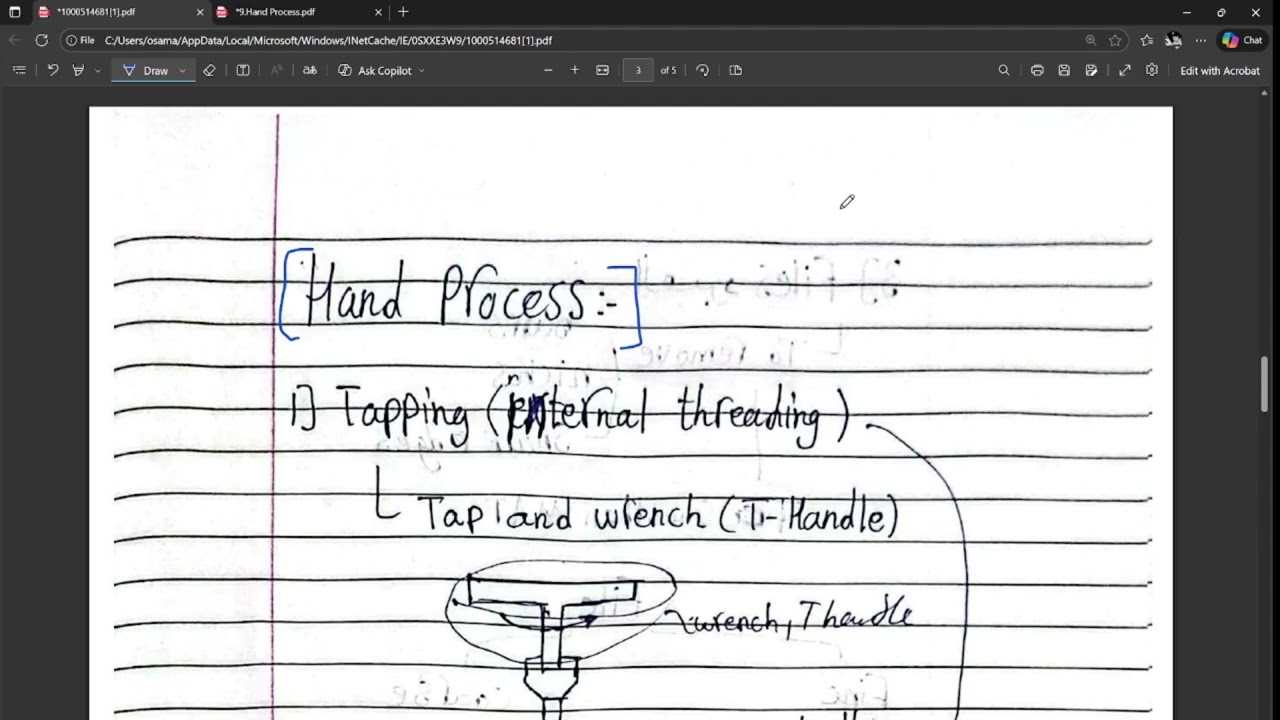 *1000514681[1].pdf
*9.Hand Process.pdf
File C:/Users/osama/AppData/Local/Microsoft/Windows/INetCache/IE/0SXXE3W9/1000514681[1].pdf
Chat
Draw
Ask Copilot
3 of 5
Edit with Acrobat
[Hand Process:-]
1) Tapping (Internal threading)
Tap and wrench (T-Handle)
wrench, T handle